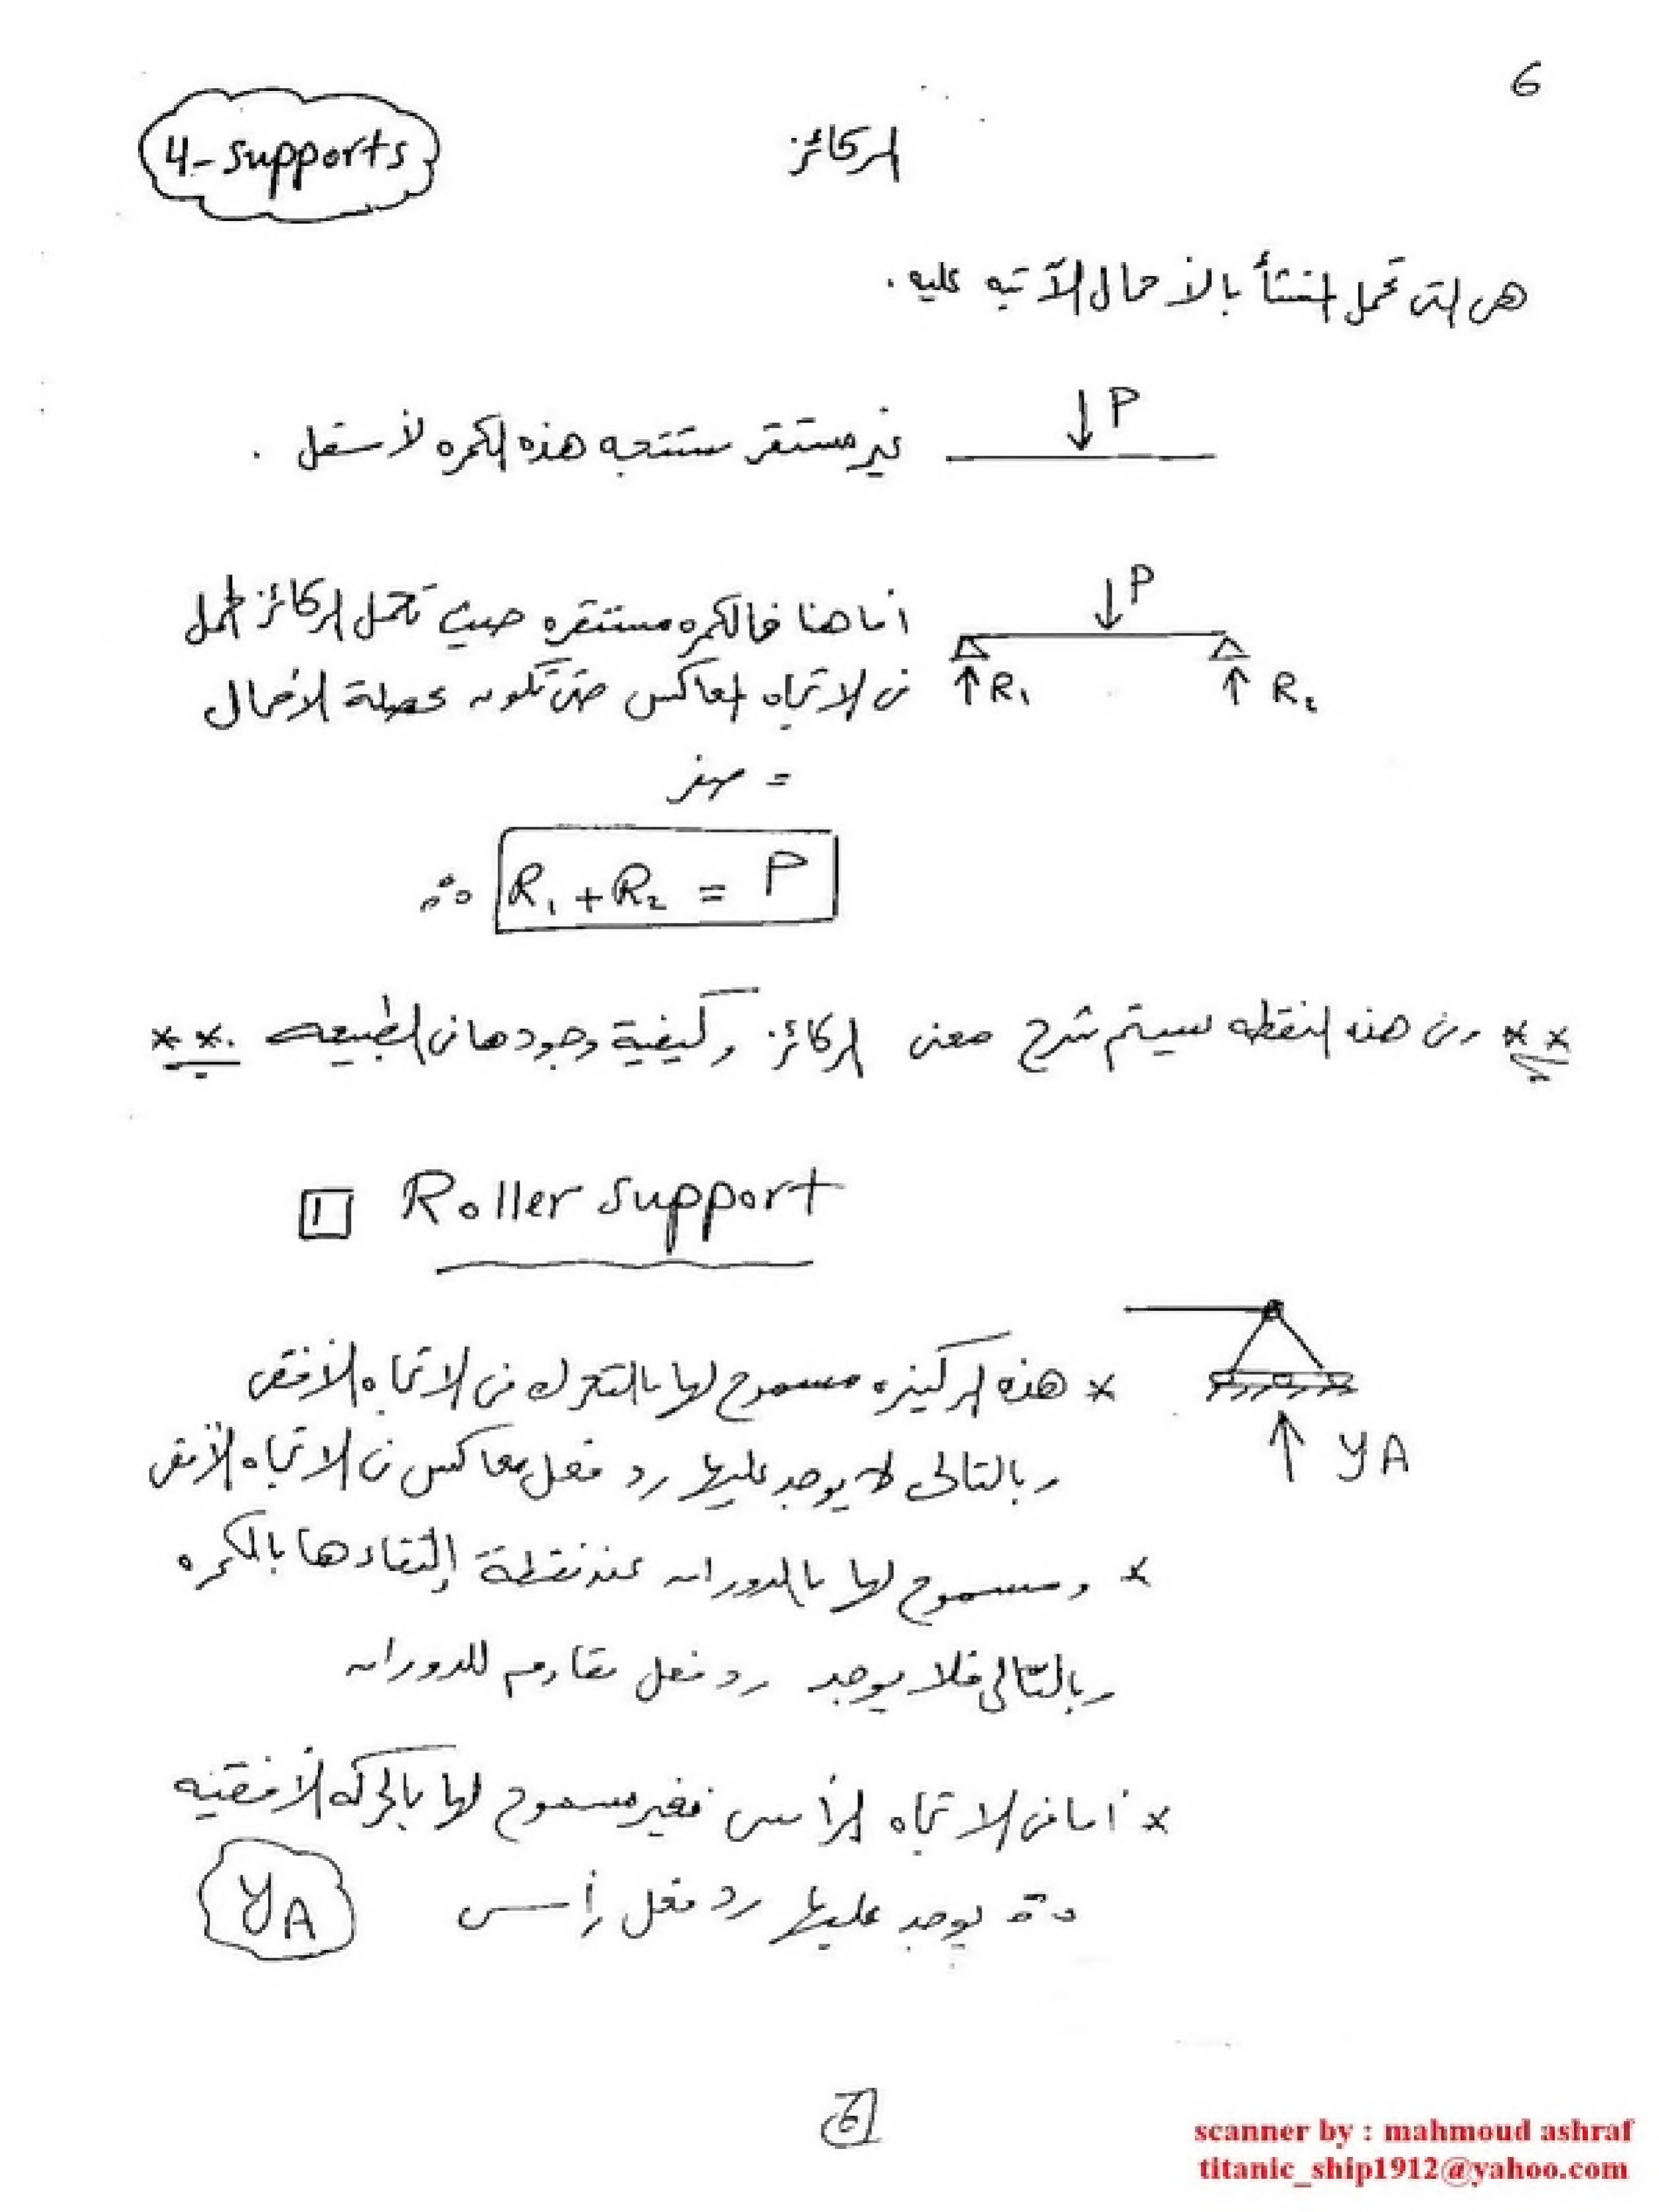 6
4- supports
الركائز
هى التى تحمل المنشأ بالأحمال الآتيه عليه .
P
غير مستقر ستتجه هذه الكمره لأسفل .
P
R₁ R₂
أما هنا فالكمره مستقره حيث تحمل الركائز الحمل
فى الاتجاه المعاكس حتى تكون محصلة الأحمال
= صفر
∴ R₁ + R₂ = P
** وفى هذه النقطه سيتم شرح معنى الركائز وكيفية وجودها فى الطبيعه .**
1 Roller support
* هذه الركيزه مسموح لها بالتحرك فى الاتجاه الأفقى
وبالتالى لا يوجد عليها رد فعل معاكس فى الاتجاه الأفقى
YA
* ومسموح لها بالدوران عند نقطة إلتقاءها بالكمره
وبالتالى فلا يوجد رد فعل مقاوم للدوران
* أما فى الاتجاه الرأسى فغير مسموح لها بالحركه الأفقيه
∴ يوجد عليها رد فعل رأسى YA
6
scanner by : mahmoud ashraf
titanic_ship1912@yahoo.com